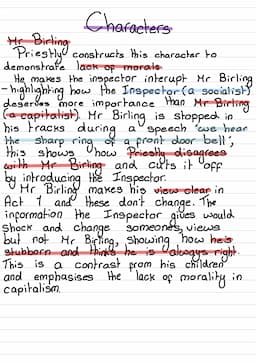 Characters
Mr Birling
Priestly constructs this character to
demonstrate lack of morals
He makes the inspector interupt Mr Birling
-highlighting how the Inspector (a socialist)
deserves more importance than Mr Birling
(a capitalist). Mr Birling is stopped in
his tracks during a speech "we hear
the sharp ring of a front door bell",
this shows how Priestly disagrees
with Mr Birling and cuts it off
by introducing the Inspector.
Mr Birling makes his view clear in
Act 1 and these don't change. The
information the Inspector gives would
shock and change someones views
but not Mr Birling, showing how he's
stubborn and thinks he is always right.
This is a contrast from his children
and emphasises the lack of morality in
capitalism.